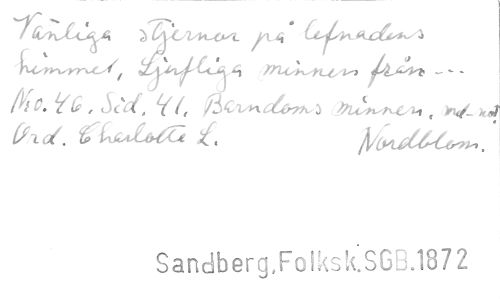 Vänliga stjernor på lefnadens
himmel, Ljufliga minnen från ---
No. 46. Sid. 41. Barndoms minnen. md-not.
Ord. Charlotte L. Nordblom.
Sandberg, Folksk. SGB. 1872